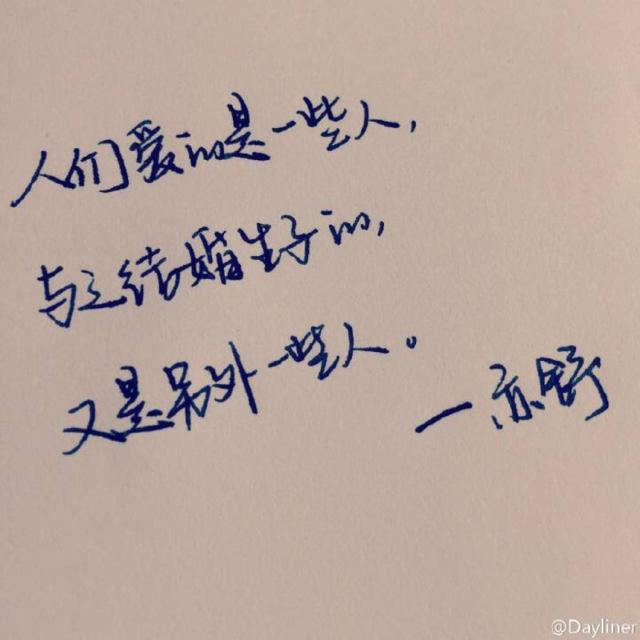 人们爱的是一些人，
与之结婚生子的，
又是另外一些人。
—亦舒
@Dayliner